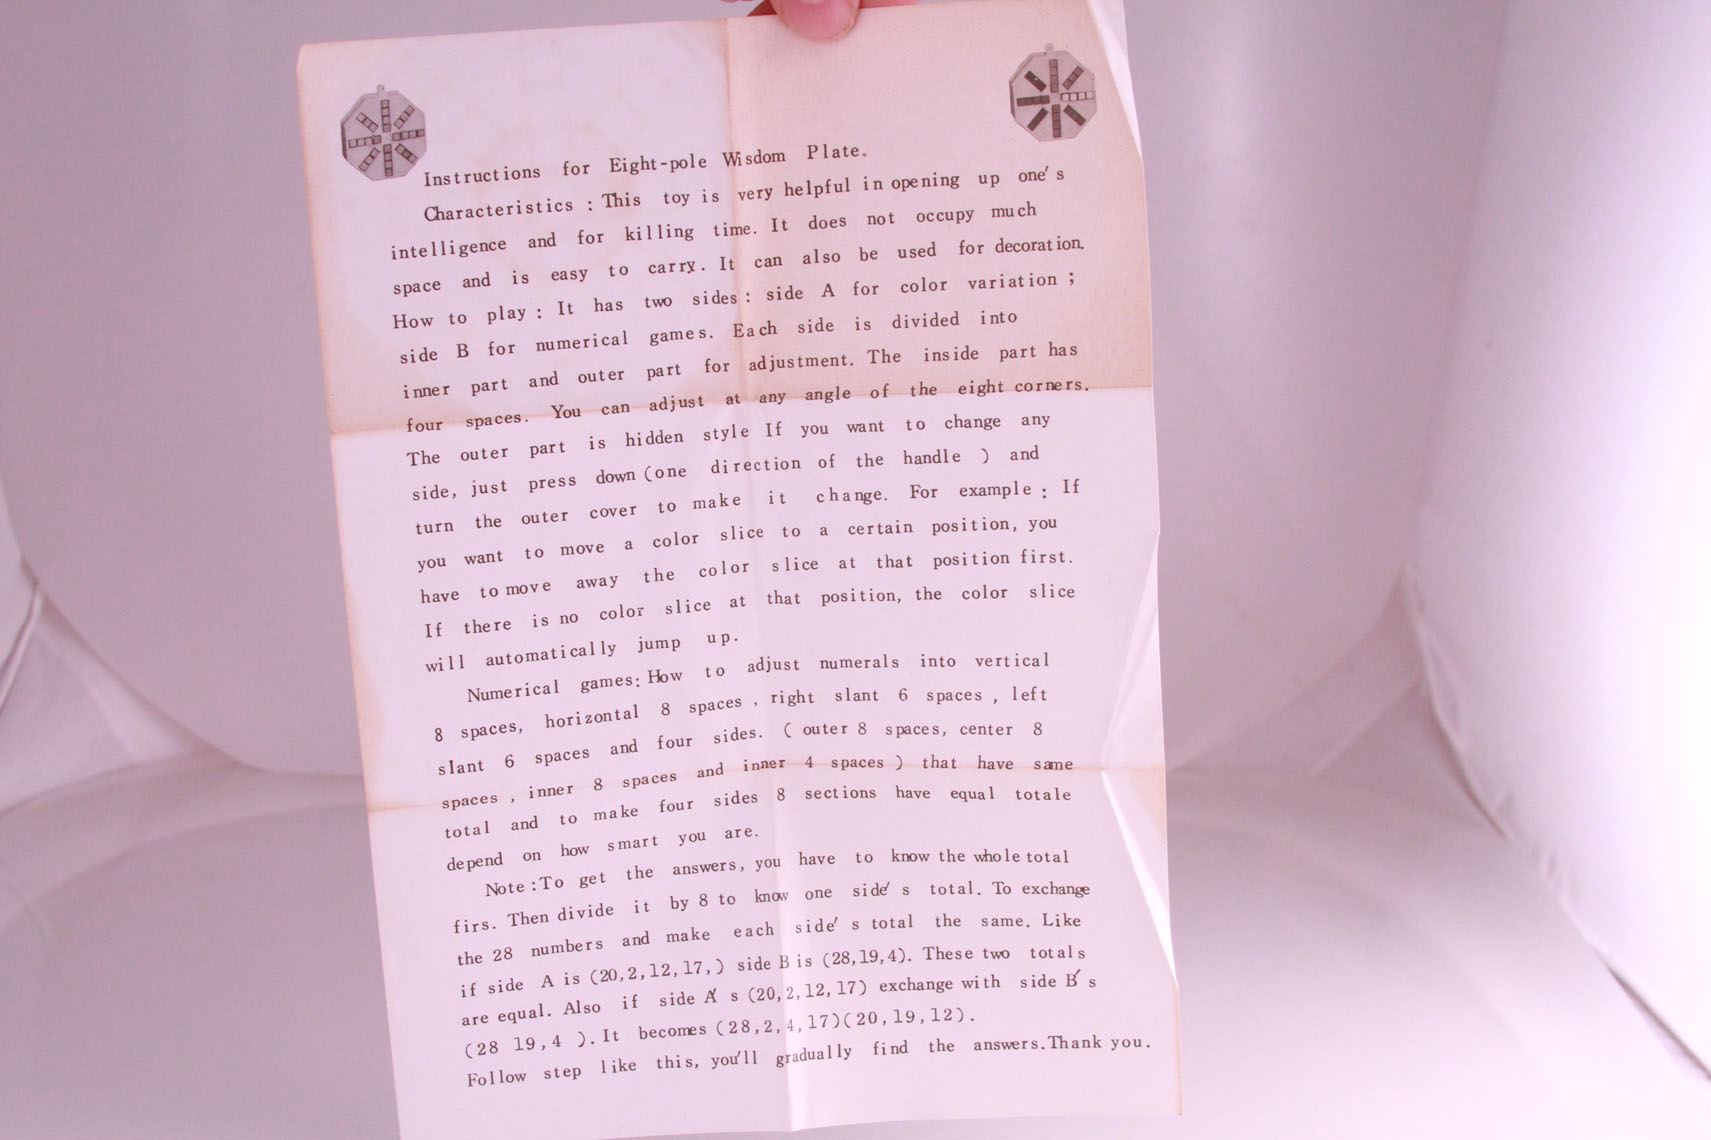 Instructions for Eight-pole Wisdom Plate.
Characteristics : This toy is very helpful in opening up one's
intelligence and for killing time. It does not occupy much
space and is easy to carry. It can also be used for decoration.
How to play : It has two sides : side A for color variation ;
side B for numerical games. Each side is divided into
inner part and outer part for adjustment. The inside part has
four spaces. You can adjust at any angle of the eight corners.
The outer part is hidden style If you want to change any
side, just press down (one direction of the handle ) and
turn the outer cover to make it change. For example : If
you want to move a color slice to a certain position, you
have to move away the color slice at that position first.
If there is no color slice at that position, the color slice
will automatically jump up.
Numerical games: How to adjust numerals into vertical
8 spaces, horizontal 8 spaces , right slant 6 spaces , left
slant 6 spaces and four sides. ( outer 8 spaces, center 8
spaces , inner 8 spaces and inner 4 spaces ) that have same
total and to make four sides 8 sections have equal totale
depend on how smart you are.
Note : To get the answers, you have to know the whole total
firs. Then divide it by 8 to know one side's total. To exchange
the 28 numbers and make each side's total the same. Like
if side A is (20,2,12,17,) side B is (28,19,4). These two totals
are equal. Also if side A's (20,2,12,17) exchange with side B's
(28 19,4 ). It becomes (28,2,4,17)(20,19,12).
Follow step like this, you'll gradually find the answers. Thank you.